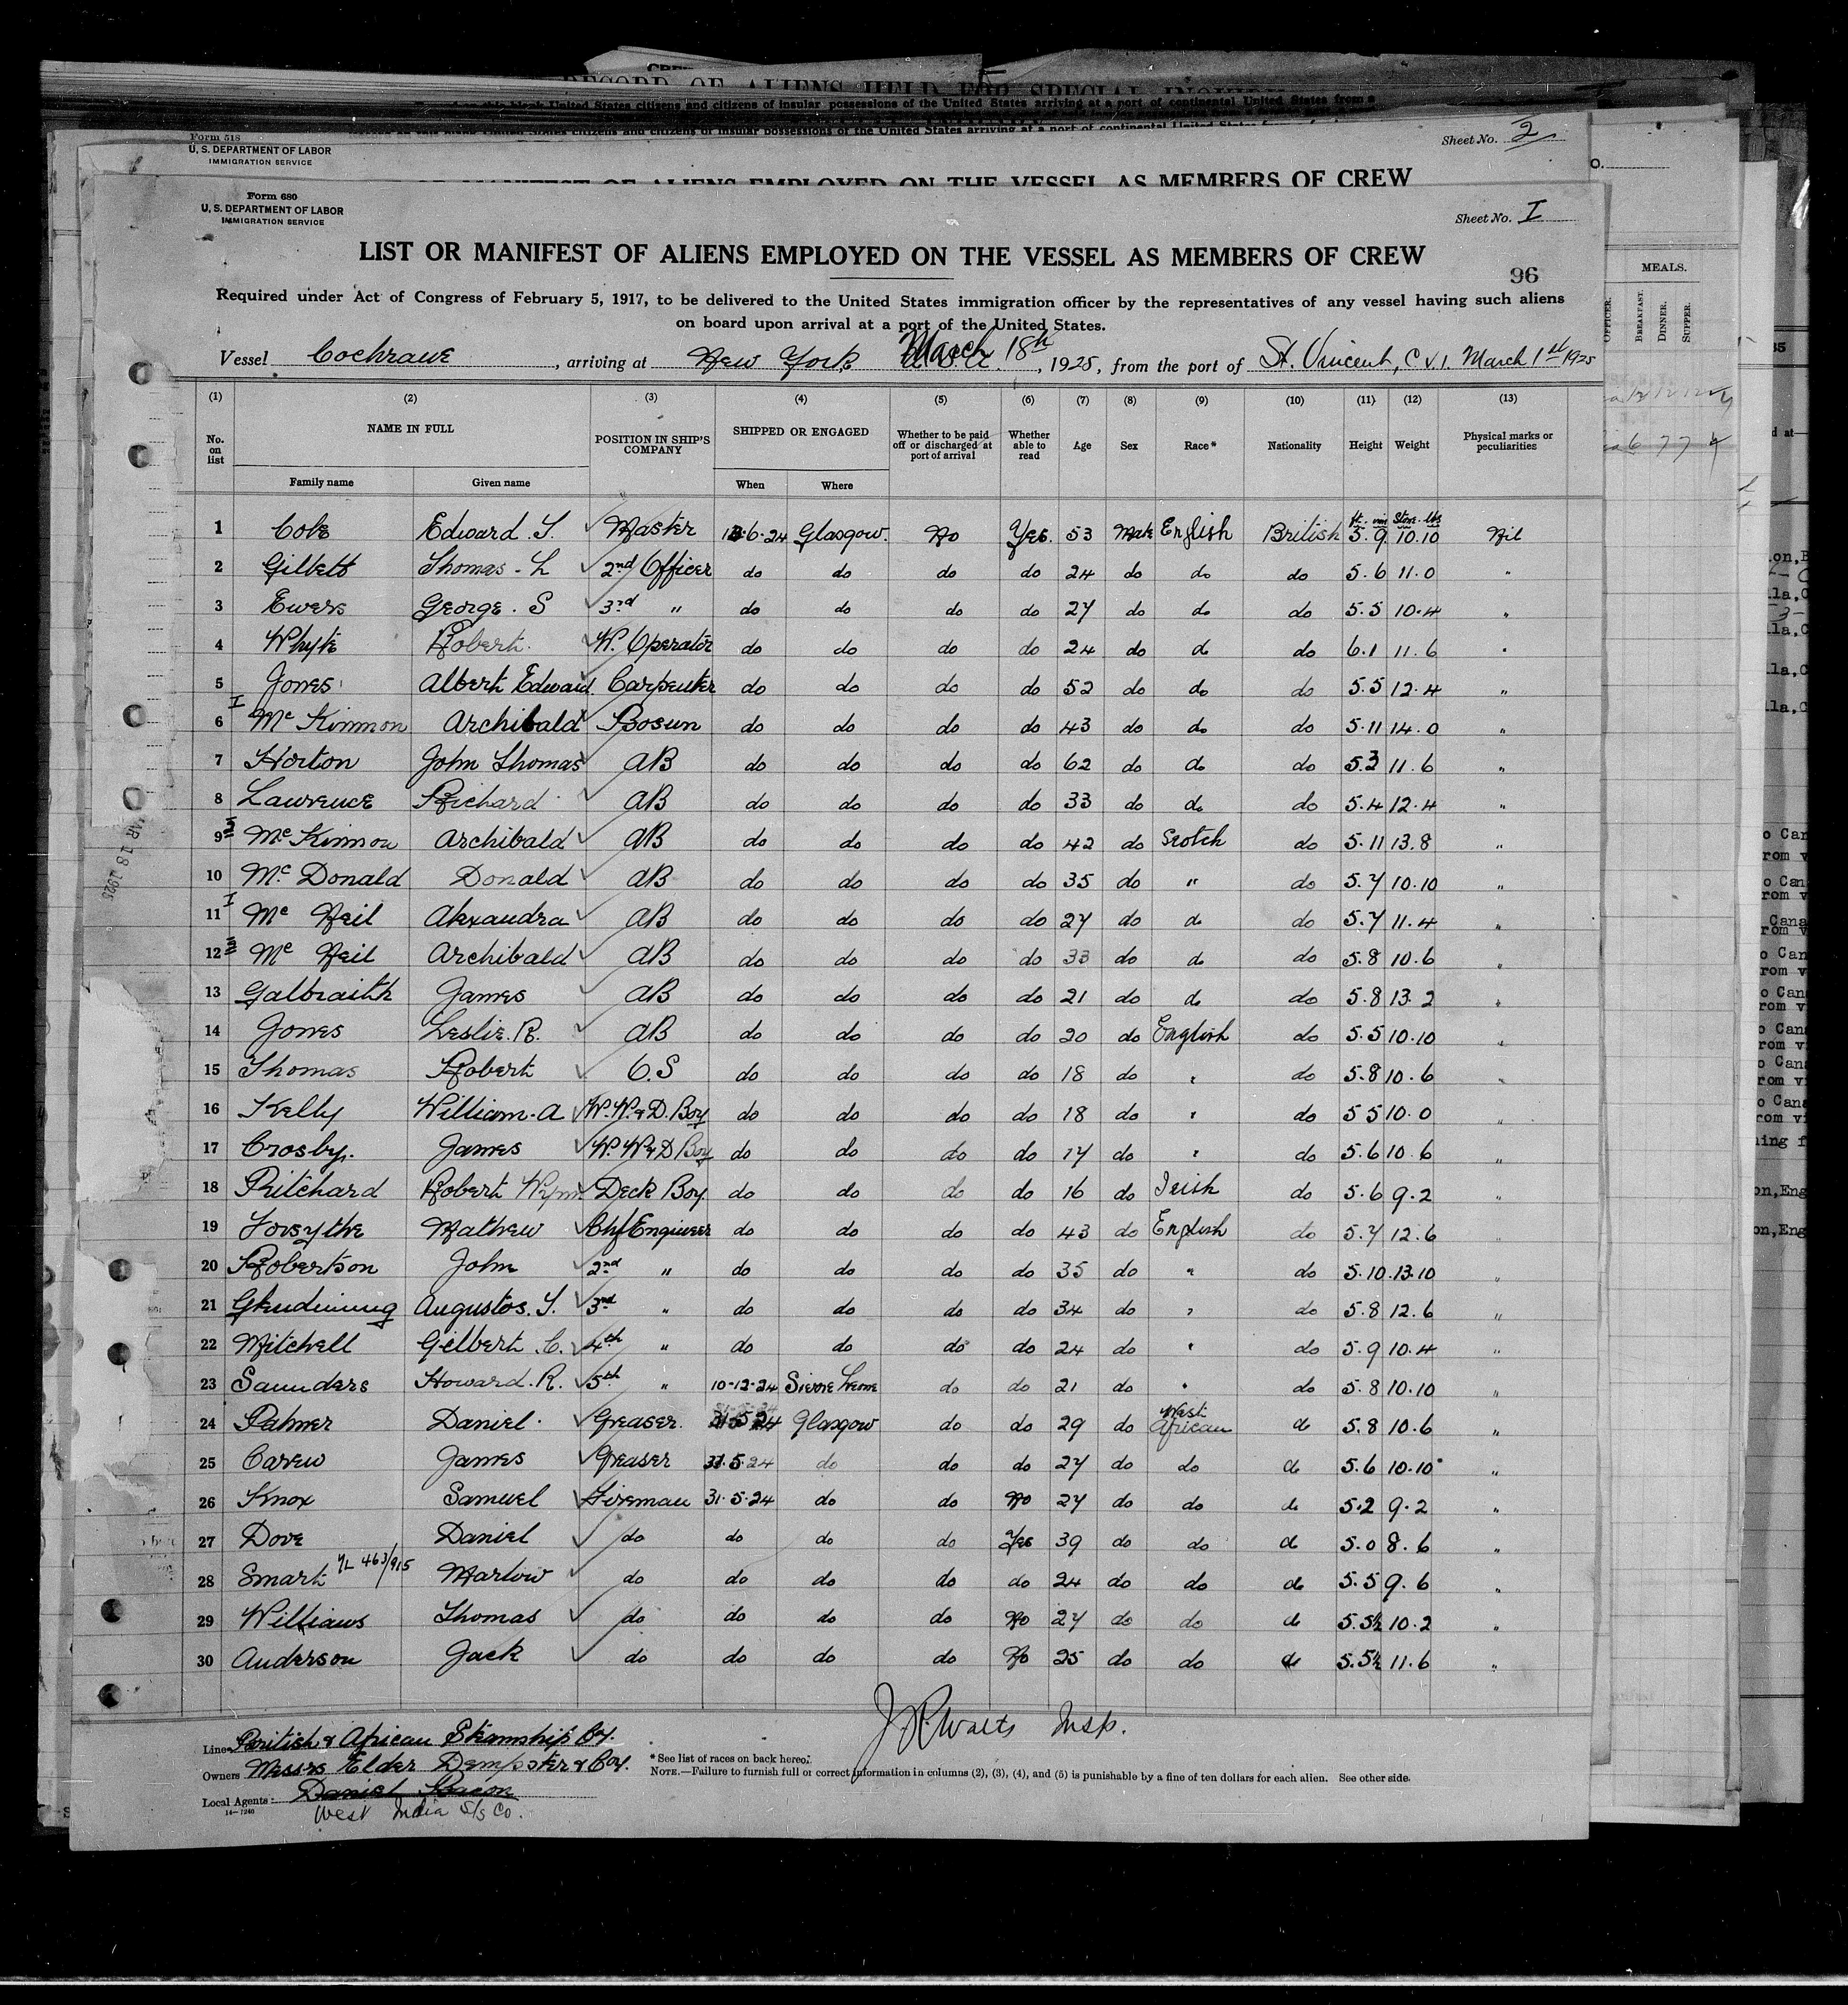 RECORD OF ALIENS HELD FOR SPECIAL INQUIRY
Form 518
U. S. DEPARTMENT OF LABOR
IMMIGRATION SERVICE
Sheet No. 2
MANIFEST OF ALIENS EMPLOYED ON THE VESSEL AS MEMBERS OF CREW
Form 680
U. S. DEPARTMENT OF LABOR
IMMIGRATION SERVICE
Sheet No. I
LIST OR MANIFEST OF ALIENS EMPLOYED ON THE VESSEL AS MEMBERS OF CREW
96
Required under Act of Congress of February 5, 1917, to be delivered to the United States immigration officer by the representatives of any vessel having such aliens
on board upon arrival at a port of the United States.
Vessel Cochrane, arriving at New York March 18th, 1925, from the port of St. Vincent, C.V.I. March 1st 1925
(1) (2) (3) (4) (5) (6) (7) (8) (9) (10) (11) (12) (13)
No. on list NAME IN FULL POSITION IN SHIP'S COMPANY SHIPPED OR ENGAGED Whether to be paid off or discharged at port of arrival Whether able to read Age Sex Race* Nationality Height Weight Physical marks or peculiarities
Family name Given name When Where
ft. ins Stone. lbs
1 Cole Edward. T. Master 13.6.24 Glasgow. No Yes. 53 Male English British 5.9 10.10 Nil
2 Gilbert Thomas - L 2nd Officer do do do do 24 do do do 5.6 11.0 "
3 Ewers George. S 3rd " do do do do 27 do do do 5.5 10.4 "
4 Whyte Robert. W. Operator do do do do 24 do do do 6.1 11.6 "
5 Jones Albert Edward Carpenter do do do do 52 do do do 5.5 12.4 "
6 I McKinnon Archibald Bosun do do do do 43 do do do 5.11 14.0 "
7 Horton John Thomas AB do do do do 62 do do do 5.3 11.6 "
8 Lawrence Richard AB do do do do 33 do do do 5.4 12.4 "
9 McKinnon Archibald AB do do do do 42 do Scotch do 5.11 13.8 "
10 McDonald Donald AB do do do do 35 do " do 5.7 10.10 "
11 I McNeil Alexandra AB do do do do 27 do do do 5.7 11.4 "
12 McNeil Archibald AB do do do do 33 do do do 5.8 10.6 "
13 Galbraith James AB do do do do 21 do do do 5.8 13.2 "
14 Jones Leslie. R. AB do do do do 20 do English do 5.5 10.10 "
15 Thomas Robert O.S do do do do 18 do " do 5.8 10.6 "
16 Kelly William. A W. W. & D. Boy do do do do 18 do " do 5 5 10.0 "
17 Crosby. James W. W & D Boy do do do do 17 do " do 5.6 10.6 "
18 Pritchard Robert Wynn Deck Boy. do do do do 16 do Irish do 5.6 9.2 "
19 Forsythe Mathew Chf Engineer do do do do 43 do English do 5.7 12.6 "
20 Robertson John 2nd " do do do do 35 do " do 5.10 13.10 "
21 Glendinning Augustos. T. 3rd " do do do do 34 do " do 5.8 12.6 "
22 Mitchell Gilbert. C. 4th " do do do do 24 do " do 5.9 10.4 "
23 Saunders Howard. R. 5th " 10-12-24 Sierre Leone do do 21 do " do 5.8 10.10 "
24 Palmer Daniel. Greaser. 31.5 24 Glasgow do do 29 do West African do 5.8 10.6 "
25 Carew James Greaser 31.5.24 do do do 27 do do do 5.6 10.10 "
26 Knox Samuel Fireman 31.5.24 do do No 27 do do do 5.2 9.2 "
27 Dove Daniel do do do do Yes 39 do do do 5.0 8.6 "
28 Smart 463/915 Marlow do do do do do 24 do do do 5.5 9.6 "
29 Williams Thomas do do do do No 27 do do do 5.5½ 10.2 "
30 Anderson Jack do do do do No 25 do do do 5.5½ 11.6 "
J. R. Watts Insp.
Line British & African Steamship Coy.
Owners Messrs Elder Dempster & Coy.
Local Agents: Daniel Bacon
West India S/S Co.
14—1240
* See list of races on back hereof.
NOTE.—Failure to furnish full or correct information in columns (2), (3), (4), and (5) is punishable by a fine of ten dollars for each alien. See other side.
MAR 18 1925
MEALS.
OFFICER.
BREAKFAST.
DINNER.
SUPPER.